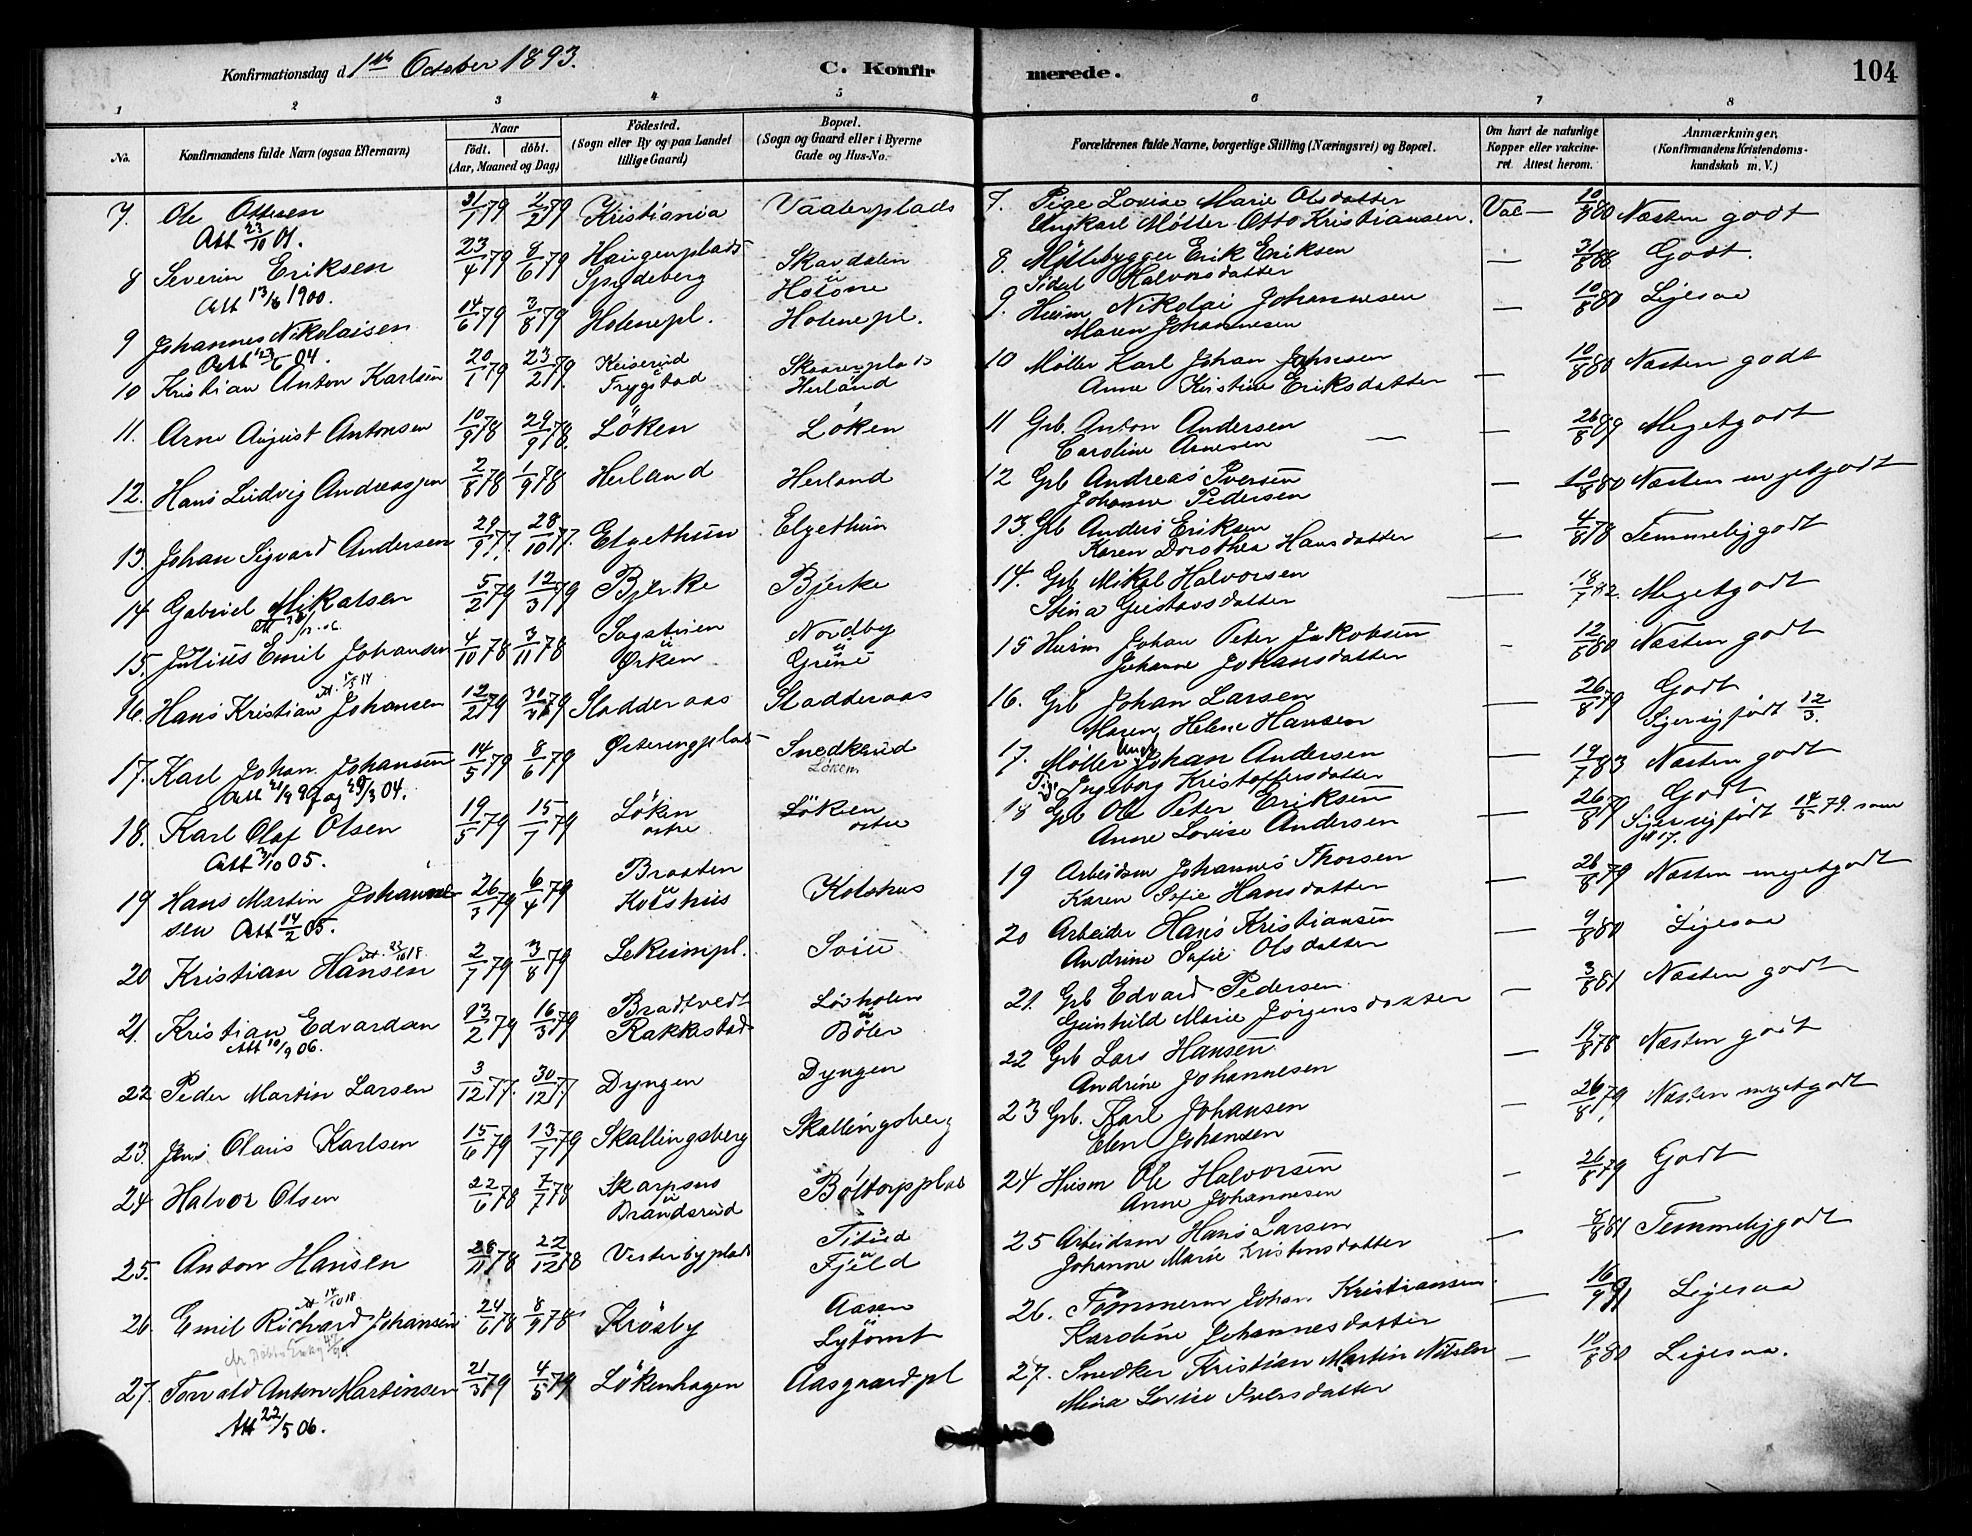 Konfirmationsdag d. 1ste October 1893.
C. Konfirmerede.
104
1 2 3 4 5 6 7 8
No.
Konfirmandens fulde Navn (ogsaa Efternavn)
Naar
födt. döbt.
(Aar, Maaned og Dag)
Födested.
(Sogn eller By og paa Landet
tillige Gaard)
Bopæl.
(Sogn og Gaard eller i Byerne
Gade og Hus-No.
Forældrenes fulde Navne, borgerlige Stilling (Næringsvei) og Bopæl.
Om havt de naturlige
Kopper eller vakcine-
ret. Attest herom.
Anmærkninger.
(Konfirmandens Kristendoms-
kundskab m. V.)
7. Ole Ottesen 31/1 79 2/2 79 Kristiania Vaalerplads 7. Pige Lovise Marie Olsdatter
Att 23/10 01. Ungkarl Møller Otto Kristiansen. Vac — 10/8 80 Næsten godt
8 Severin Eriksen 23/4 79 8/6 79 Haugenplads Skavdalen 8. Møllebygger Erik Eriksen — 31/8 88 Godt.
Att 13/6 1900. Spydeberg Halvorsdatter
9 Johannes Nikolaisen 14/6 79 3/8 79 Holenepl. Holenepl. 9. Husm Nikolai Johannesen — 10/8 80 Ligesaa
Maren Johannesen
10 Kristian Anton Karlsen 20/1 79 23/2 79. Trygstad Herland 10 Møller Karl Johan Johnsen — 10/8 80 Næsten godt
Anne Kristine Eriksdatter
11. Arne August Antonsen 10/9 78 29/9 78 Löken Löken 11 Grb. Anton Andersen — 26/8 89 Megetgodt
Caroline Arnesen
12. Hans Ludvig Andreassen 2/8 78 1/9 78 Herland Herland 12 Grb Andreas Iversen — 10/8 80 Næsten megetgodt
Johanne Pedersen
13. Johan Sigvard Andersen 29/9 77. 28/10 77. Elgethun Elgethun 13. Grb Anders Eriksen — 4/8 78 Temmeligodt
Karen Dorothea Hansdatter
14 Gabriel Mikalsen 5/2 79 12/3 79 Bjerke Bjerke 14. Grb Mikal Halvorsen — 18/7 82. Megetgodt
Stina Gustavsdatter
15. Julius Emil Johansen 4/10 78 3/11 78 Sagstuen Nordby 15 Husm Johan Peter Jakobsen - 12/8 80 Næsten godt
Ørken Johanne Johansdatter
16. Hans Kristian Johansen 12/2 79 Sladderaas Sladderaas 16. Grb Johan Larsen — 26/8 79 Godt
Maren Helene Hansen Siger sig født 12/3.
17. Karl Johan Johansen 14/5 79 8/6 79 Snedkerud 17. Møller Johan Andersen — 19/7 83 Næsten godt
Löken Ingeborg Kristoffersdatter
18. Karl Olaf Olsen 19/5 79 15/7 79 Löken Löken 18 Grb Ole Peter Eriksen — 26/8 79 Godt
Att 3/10 05. østre østre Anne Lovise Andersen Siger sig født 14/5 79. som
No 17.
19 Hans Martin Johanne- 26/3 79 6/4 79 Braaten Kolshus 19 Arbeidsm Johannes Thorsen — 26/8 79 Næsten megetgodt
sen Att 14/2 05. i Kolshus Karen Sofie Hansdatter
20 Kristian Hansen 2/7 79 3/8 79 20 Arbeider Hans Kristiansen — 9/8 80 Ligesaa
Andrine Sofie Olsdatter
21. Kristian Edvardsen 23/2 79 16/3 79 Bradtvedt Løvholen 21. Grb Edvard Pedersen — 3/8 81 Næsten godt
Att 10/9 06. Rakkestad Böler Gunhild Marie Jörgensdatter
22 Peder Martin Larsen 3/12 77. 30/12 77 Dyngen Dyngen 22 Grb Lars Hansen — 19/8 78 Næsten godt
Andrine Johannesen
23. Jens Olaus Karlsen 15/6 79 13/7 79 Skallingsberg Skallingsberg 23 Grb. Karl Johansen - 26/8 79 Næsten megetgodt
Elen Johansen
24 Halvor Olsen 22/6 78 7/7 78 Skarpsno Böltorpplads 24 Husm Ole Halvorsen - 26/8 79 Godt
u Brandsrud Anne Johannesen
25. Anton Hansen 28/11 78 22/12 78 Vesterbyplads 25 Arbeidsm Hans Larsen — 8/8 81 Temmeligodt
u Fjeld Johanne Marie Kristensdatter
26 Emil Richard Johansen 24/6 78 8/9 78 Krosby Aasen 26. Tömmerm Johan Kristiansen — 16/9 91 Ligesaa
u Lytomt Karoline Johannesdatter
27. Torvald Anton Martinsen 21/3 79 4/5 79 Lökenhagen Aasgaardpl 27. Snedker Kristian Martin Nilsen — 10/8 80 Ligesaa.
Att 22/5 06. Mina Lovise Iversdatter